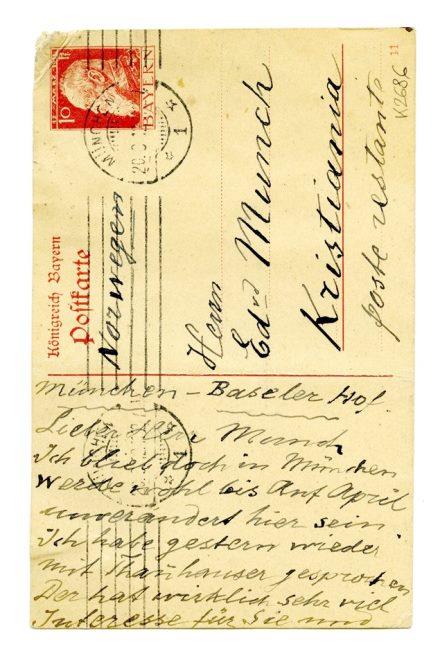 10 Pf
BAYERN
MÜNCHEN
1
Königreich Bayern
Postkarte
11
K2686
Norwegen
Herrn
Edvd Munch
Kristiania
poste restante
München – Baseler Hof.
Lieber Herr Munch
Ich blieb doch in München
Werde wohl bis Anf April
unverändert hier sein
Ich habe gestern wieder
mit Thanhauser gesprochen
Der hat wirklich sehr viel
Interesse für Sie und